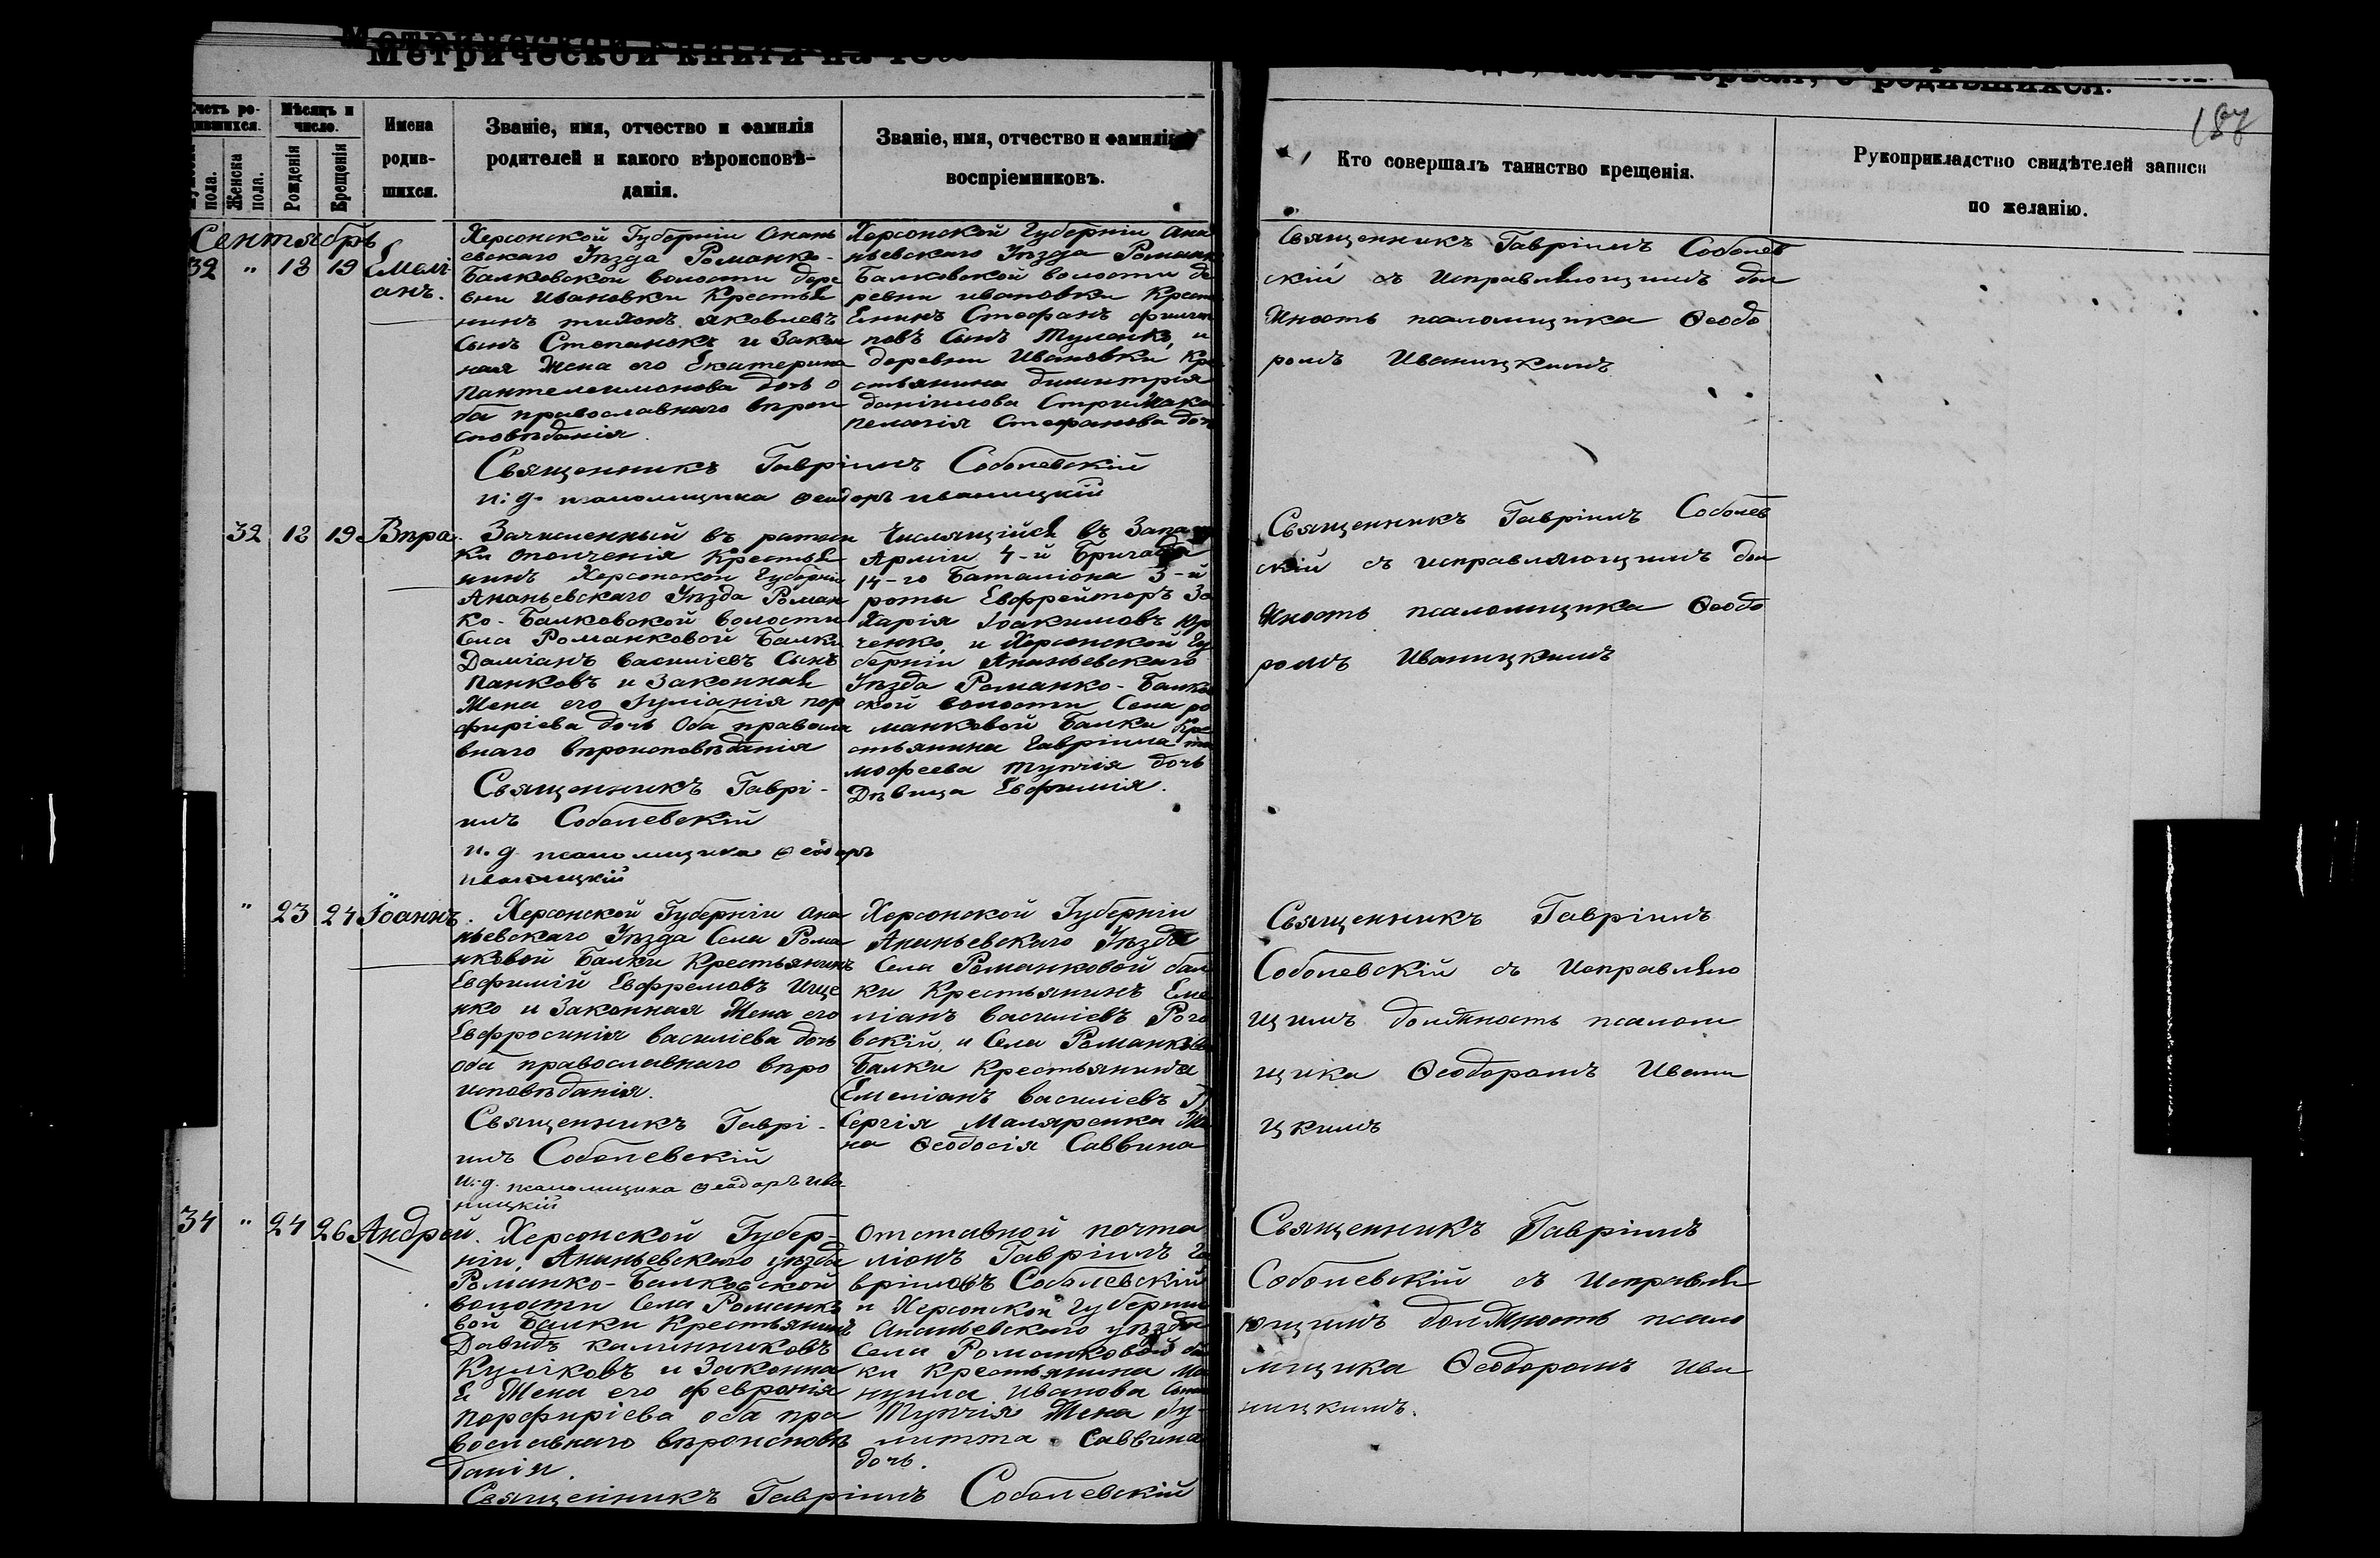 Метрической книги на 18
Счетъ ро-
дившихся.
Мѣсяцъ и
число.
Имена
родив-
шихся.
Званіе, имя, отчество и фамилія
родителей и какого вѣроисповѣ-
данія.
Званіе, имя, отчество и фамилія
воспріемниковъ.
пола.
Женска
пола.
Рожденія
Крещенія
Сентябрь
32 " 18 19 Емелі
анъ.
Херсонской Губерніи Анань
евскаго Уѣзда Романко-
Балковской волости дере
вни Ивановки Крестья
нинъ тихонъ яковлевъ
Сынъ Степанокъ и Закон
ная Жена его Екатерина
Пантелеимонова дочь о
ба православнаго вѣрои
сповѣданія.
Херсонской Губерніи Ана
ньевскаго Уѣзда Романко
Балковской волости де
ревни ивановки Крест
янинъ Стефанъ филип
повъ Сынъ Туленко, и
деревни Ивановки Кре
стьянина димитрія
даніилова Стрижака
пелагія Стефанова доч
Священникъ Гавріилъ Соболевскій
и: д. псаломщика Феодоръ иваницкій
32 18 19 Вѣра.
Зачисленный въ ратни
ки ополченія Крестья
нинъ Херсонской Губерніи
Ананьевскаго Уѣзда Роман
ко-Балковской волости
Села Романковой Балки
Даміанъ василіевъ Сынъ
Панковъ и Законная
Жена его Іуліанія пор
фиріева дочь Оба правосла
внаго вѣроисповѣданія
Священникъ Гаврі-
илъ Соболевскій
и. д. псаломщика Феодоръ
иваницкій
Числящійся въ Запа
Арміи 4-й Бригады
14-го Баталіона 3-й
роты Евфрейторъ За
харія Іоакимовъ Юр
ченко, и Херсонской Гу
берніи Ананьевскаго
Уѣзда Романко-Балко
ской волости Села ро
манковой Балки Кре
стьянина Гавріила ти
мофеева Тупчія дочь
Дѣвица Евфимія.
" 23 24 Іоаннъ.
Херсонской Губерніи Ана
ньевскаго Уѣзда Села Рома
нковой Балки Крестьянинъ
Евфимій Евфремовъ Ище
нко и Законная Жена его
Евфросинія василіева дочь
оба православнаго вѣро
исповѣданія.
Священникъ Гаврі-
илъ Соболевскій
и. д. псаломщика Феодоръ Ива-
ницкій
Херсонской Губерніи
Ананьевскаго Уѣзда
Села Романковой бал
ки Крестьянинъ Еме
ліанъ василіевъ Рого
вскій, и Села Романково
Балки Крестьянина
Емеліанъ василіевъ
Сергія Маляренка Же
на Феодосія Саввина
34 " 24 26 Андрей.
Херсонской Губер-
ніи, Ананьевскаго уѣзда
Романко-Балковской
волости Села Романко
вой Балки Крестьянинъ
Давидъ калинниковъ
Куліковъ и Законна
я Жена его февронія
порфиріева оба пра
вославнаго вѣроисповѣ
данія.
Отставной почта
ліонъ Гавріилъ Га
вріиловъ Соболевскій
и Херсонской Губерніи
Ананьевскаго уѣзда
Села Романковой ба
ки Крестьянина Ма
нуила Иванова Сына
Тупчія Жена Іу-
литта Саввина
дочь.
Священникъ Гавріилъ Соболевскій
годъ, часть первая, о родившихся.
187
Кто совершалъ таинство крещенія.
Рукоприкладство свидѣтелей записи
по желанію.
Священникъ Гавріилъ Соболев
скій съ Исправляющимъ дол
жность псаломщика Феодо
ромъ Иваницкимъ
Священникъ Гавріилъ Соболев
скій съ исправляющимъ дол
жность псаломщика Феодо
ромъ Иваницкимъ
Священникъ Гавріилъ
Соболевскій съ Исправляю
щимъ должность псалом
щика Феодоромъ Ивани
цкимъ
Священникъ Гавріилъ
Соболевскій съ Исправля
ющимъ должность псало
мщика Феодоромъ Ива
ницкимъ.